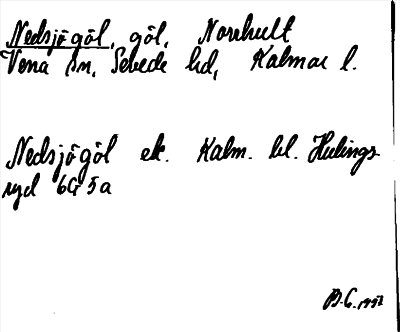 Nedsjögöl, göl, Norrhult
Vena sn, Sevede hd, Kalmar l.
Nedsjögöl ek. Kalm. bl. Hulings
ryd 6G 5a
B.G. 1957